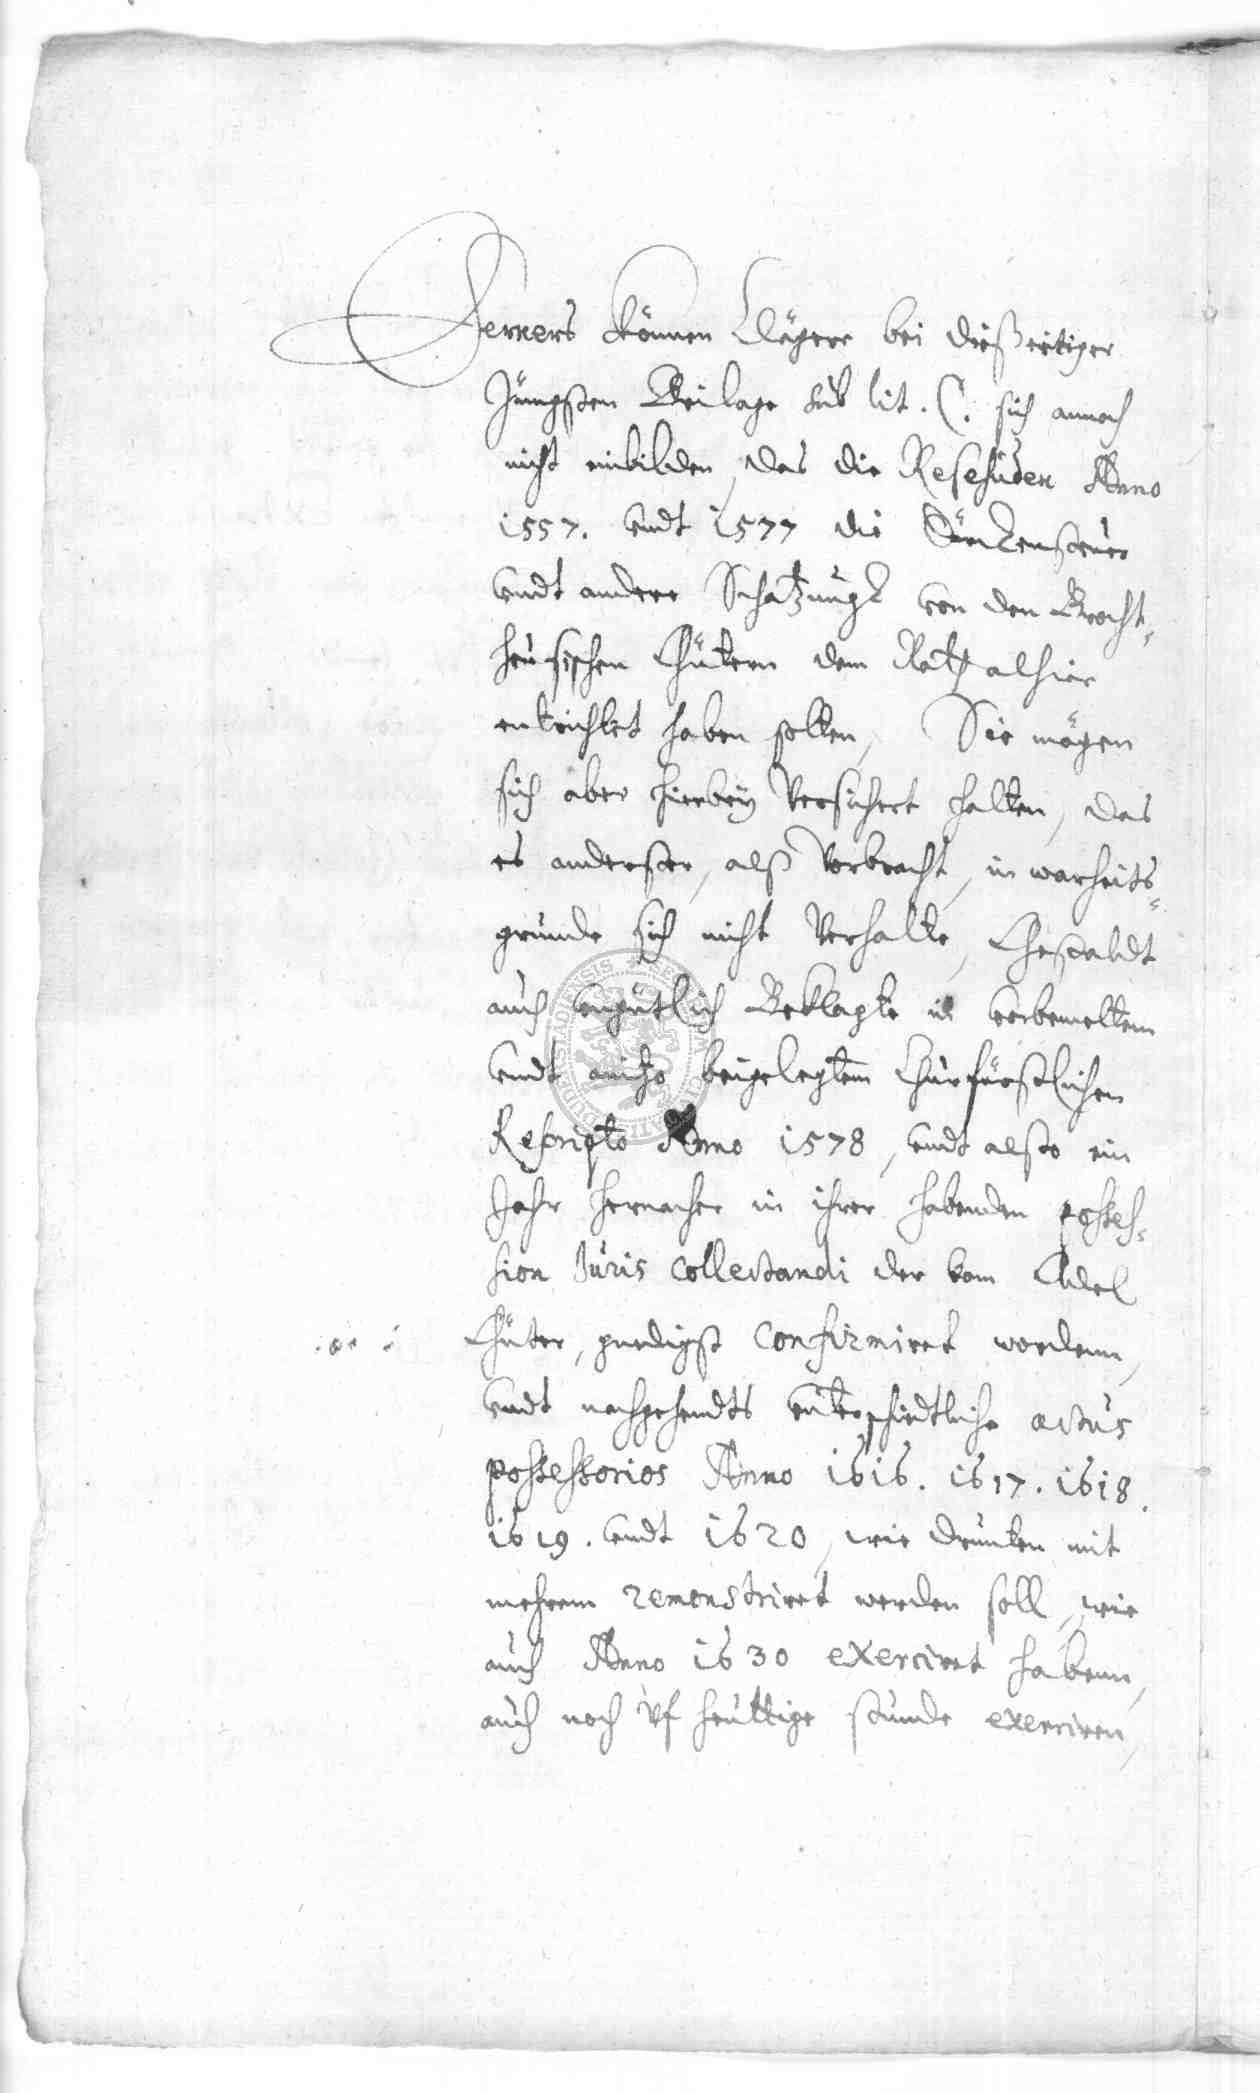 Ferners können Clägere bei dießeitiger
Jüngsten Beilage sub lit. C. sich annoch
nicht einbilden, das die Resehüden Anno
1557. vndt 1577 die Türckensteuer
vndt andere Schatzung von den Brocht-
heusischen Güttern dem Rath alhier
entrichtet haben sollen, Sie mögen
sich aber hierbey versichert halten, das
es anderster, alß vorbracht, in warheits-
grunde sich nicht verhalte, Gestaldt
auch Beklagte in vorbemeltem
vndt anitzo beigelegtem Churfürstlichen
Rescripto Anno 1578, vndt also ein
Jahr hernacher in ihrer habenden posses-
sion Juris collectandi der vom Adel
Güter, gnedigst confirmiret wordenn,
vndt nachgehendts vnterschiedtliche actus
possessorios Anno 1616. 1617. 1618.
1619. vndt 1620, wie drunten mit
mehrem remonstriret werden soll, wie
auch Anno 1630 exerciret habenn,
auch noch vf heuttige stunde exerciren,
SECRETUM CIVITATIS DUDERSTADIENSIS